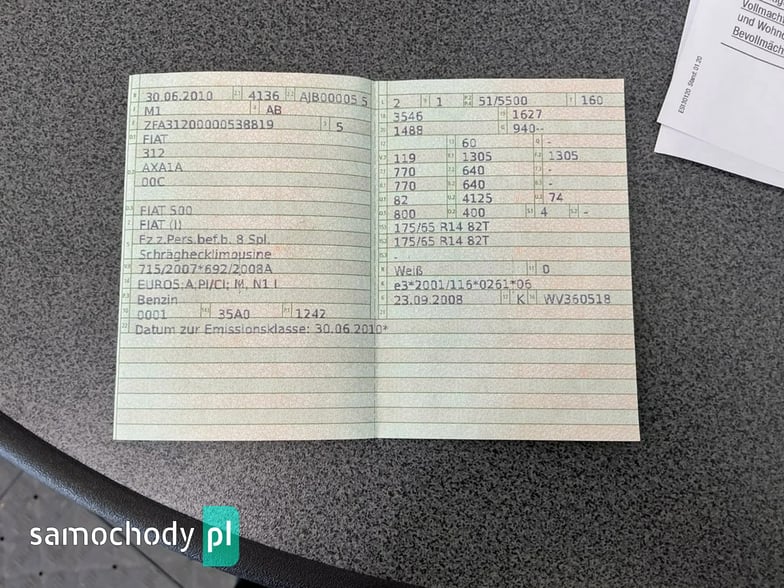 30.06.2010 4136 AJB00005 5
M1 AB
ZFA31200000538819 5
FIAT
312
AXA1A
00C
FIAT 500
FIAT (I)
Fz.z.Pers.bef.b. 8 Spl.
Schräghecklimousine
715/2007*692/2008A
EURO5;A;PI/CI; M, N1 I
Benzin
0001 35A0 1242
Datum zur Emissionsklasse: 30.06.2010*
2 1 51/5500 160
3546 1627
1488 940--
60 -
119 1305 1305
770 640 -
770 640 -
82 4125 74
800 400 4 -
175/65 R14 82T
175/65 R14 82T
-
Weiß 0
e3*2001/116*0261*06
23.09.2008 K WV360518
Vollmach
und Wohn
Bevollmäch
ESI30120 Stand 01.20
samochody pl